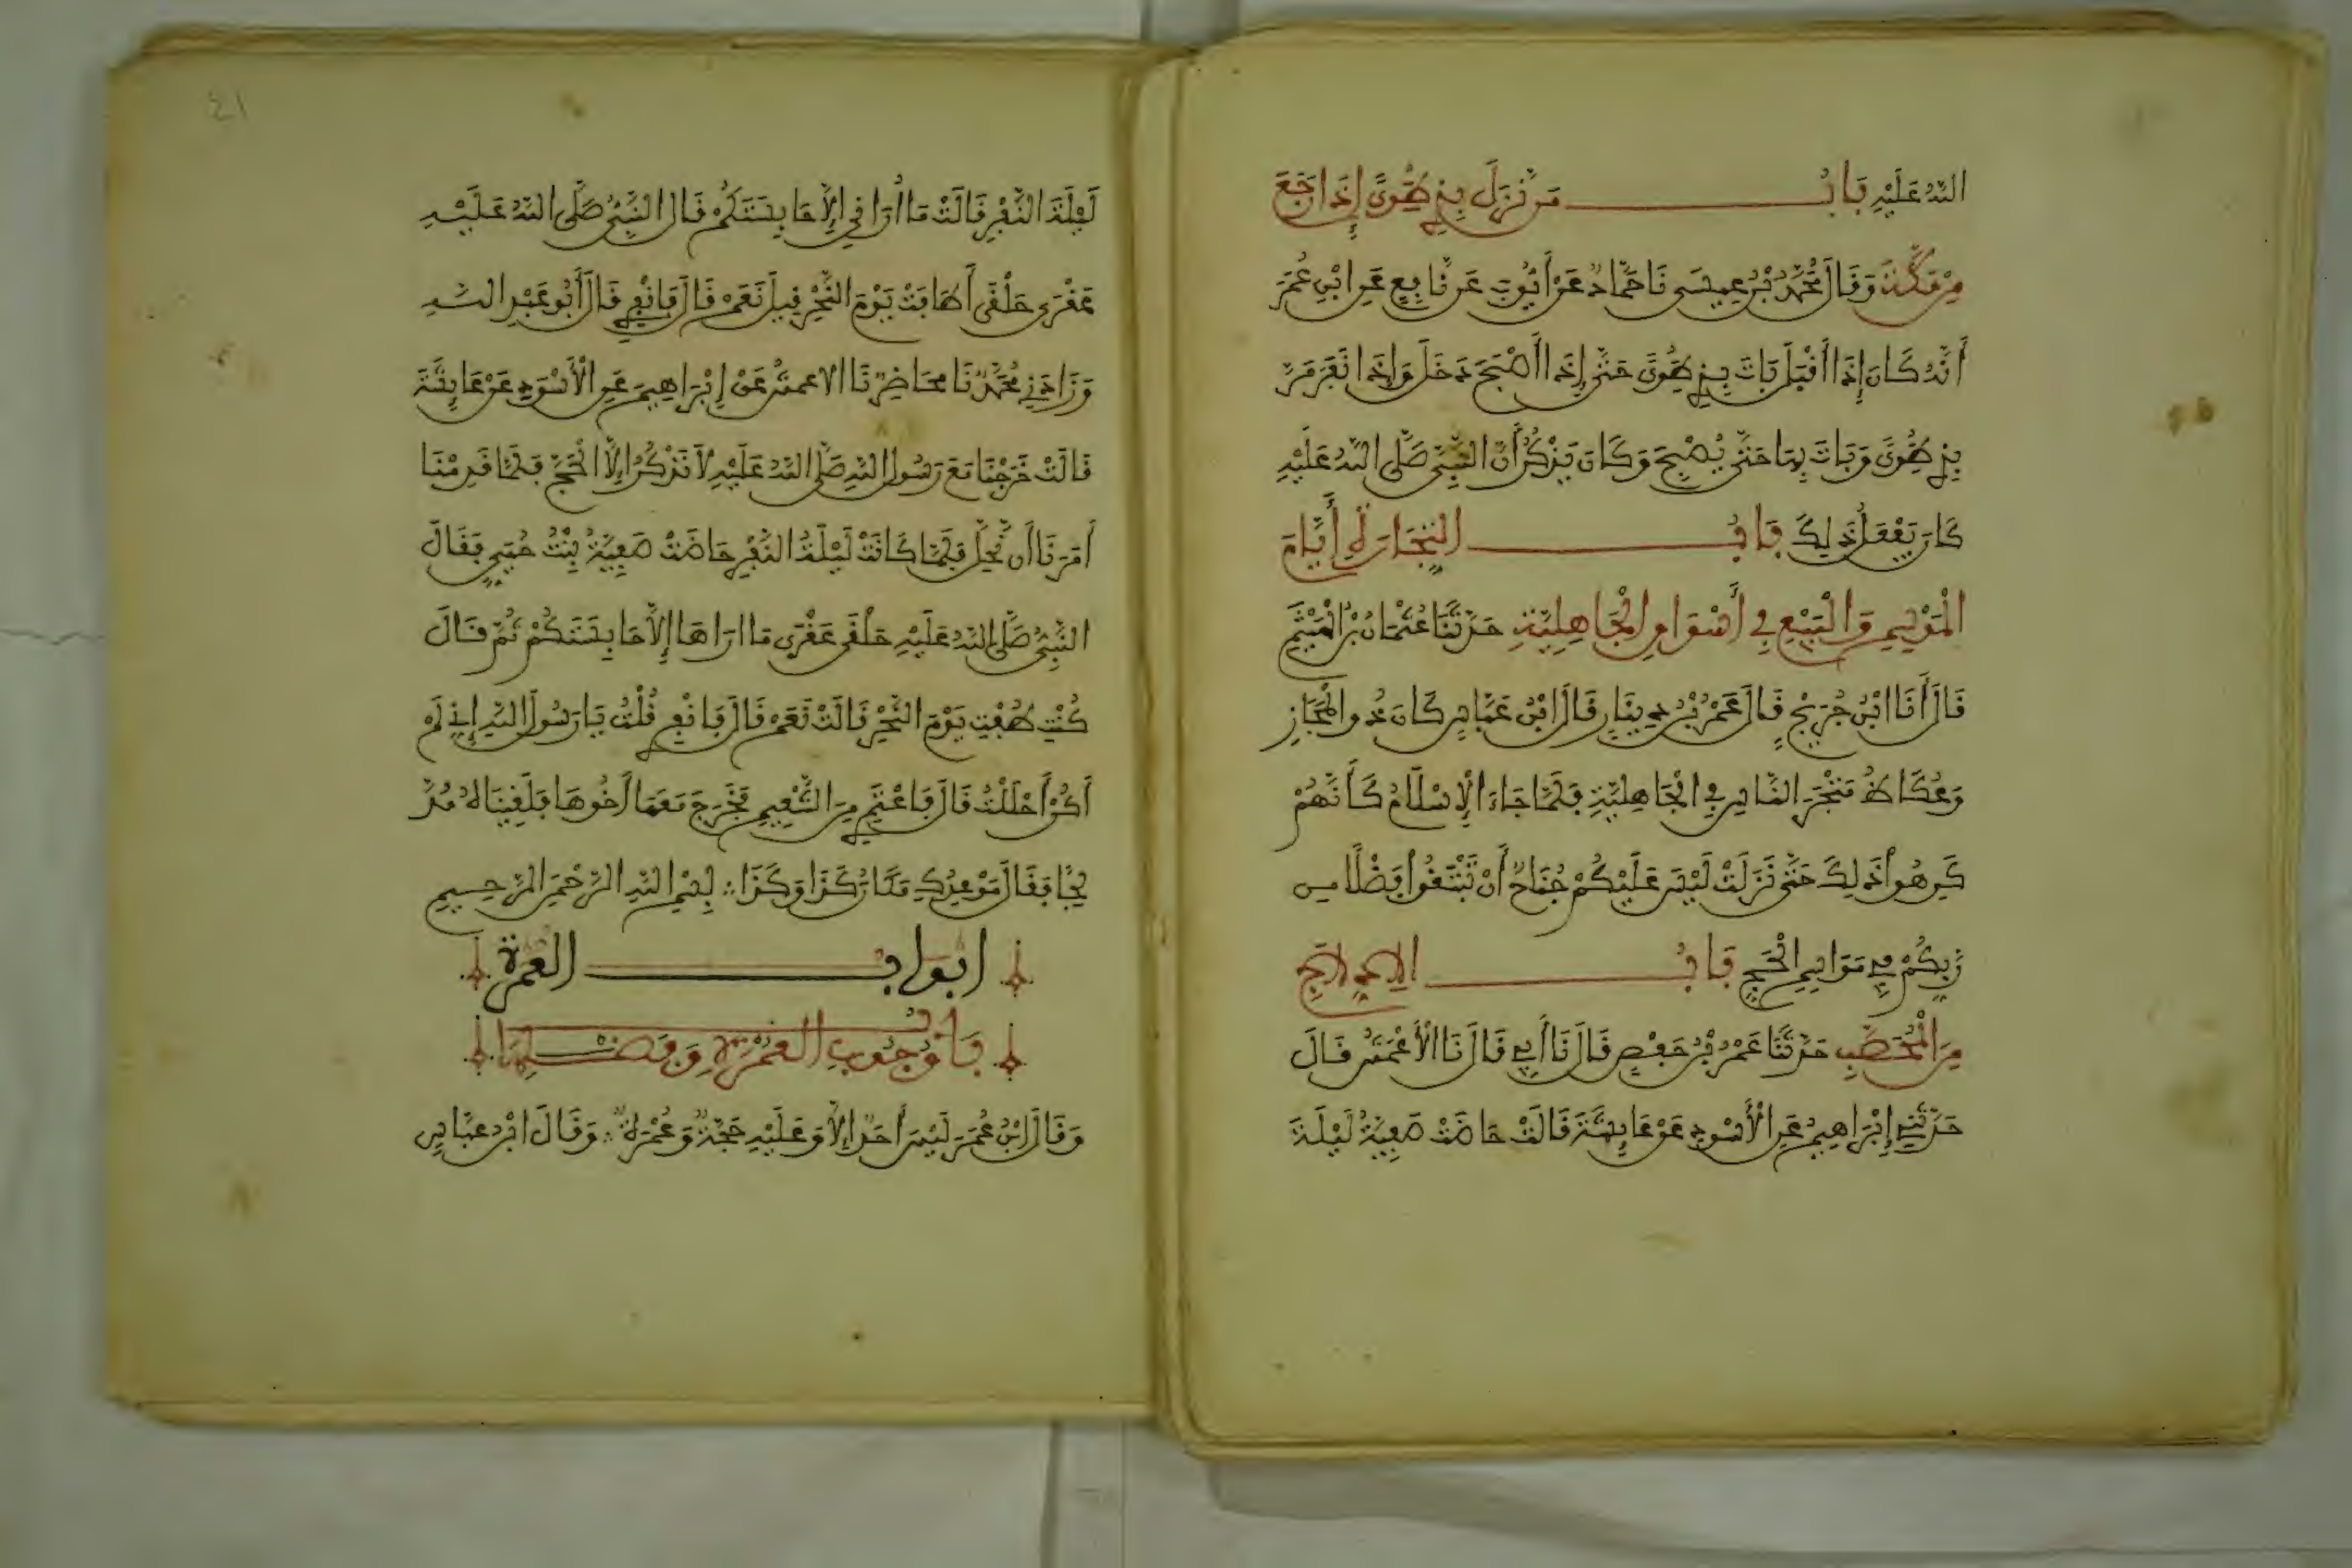 اللَّهُ عَلَيْهِ بَابُ مَنْ نَزَلَ بِذِي طُوًى إِذَا رَجَعَ
مِنْ مَكَّةَ وَقَالَ مُحَمَّدُ بْنُ عِيسَى نَا حَمَّادٌ عَنْ أَيُّوبَ عَنْ نَافِعٍ عَنِ ابْنِ عُمَرَ
أَنَّهُ كَانَ إِذَا أَقْبَلَ بَاتَ بِذِي طُوًى حَتَّى إِذَا أَصْبَحَ دَخَلَ وَإِذَا نَفَرَ مَرَّ
بِذِي طُوًى وَبَاتَ بِهَا حَتَّى يُصْبِحَ وَكَانَ يَذْكُرُ أَنَّ النَّبِيَّ صَلَّى اللَّهُ عَلَيْهِ
كَانَ يَفْعَلُ ذَلِكَ بَابُ التِّجَارَةِ أَيَّامَ
الْمَوْسِمِ وَالْبَيْعِ فِي أَسْوَاقِ الْجَاهِلِيَّةِ حَدَّثَنَا عُثْمَانُ بْنُ الْهَيْثَمِ
قَالَ أَنَا ابْنُ جُرَيْجٍ قَالَ عَمْرُو بْنُ دِينَارٍ قَالَ ابْنُ عَبَّاسٍ كَانَ ذُو الْمَجَازِ
وَعُكَاظٌ مَتْجَرَ النَّاسِ فِي الْجَاهِلِيَّةِ فَلَمَّا جَاءَ الْإِسْلَامُ كَأَنَّهُمْ
كَرِهُوا ذَلِكَ حَتَّى نَزَلَتْ لَيْسَ عَلَيْكُمْ جُنَاحٌ أَنْ تَبْتَغُوا فَضْلًا مِن
رَّبِّكُمْ فِي مَوَاسِمِ الْحَجِّ بَابُ الْادِّلَاجِ
مِنَ الْمُحَصَّبِ حَدَّثَنَا عُمَرُ بْنُ حَفْصٍ قَالَ نَا أَبِي قَالَ نَا الْأَعْمَشُ قَالَ
حَدَّثَنِي إِبْرَاهِيمُ عَنِ الْأَسْوَدِ عَنْ عَائِشَةَ قَالَتْ حَاضَتْ صَفِيَّةُ لَيْلَةَ
٤١
لَيْلَةَ النَّفْرِ فَقَالَتْ مَا أُرَانِي إِلَّا حَابِسَتَكُمْ قَالَ النَّبِيُّ صَلَّى اللَّهُ عَلَيْهِ
عَقْرَى حَلْقَى أَطَافَتْ يَوْمَ النَّحْرِ قِيلَ نَعَمْ قَالَ فَانْفِرِي قَالَ أَبُو عَبْدِ اللَّهِ
وَزَادَنِي مُحَمَّدٌ نَا مُحَاضِرٌ نَا الاعمشُ عَنْ إِبْرَاهِيمَ عَنِ الْأَسْوَدِ عَنْ عَائِشَةَ
قَالَتْ خَرَجْنَا مَعَ رَسُولِ اللَّهِ صَلَّى اللَّهُ عَلَيْهِ لَا نَذْكُرُ إِلَّا الْحَجَّ فَلَمَّا قَدِمْنَا
أَمَرَنَا أَنْ نَحِلَّ فَلَمَّا كَانَتْ لَيْلَةُ النَّفْرِ حَاضَتْ صَفِيَّةُ بِنْتُ حُيَيٍّ فَقَالَ
النَّبِيُّ صَلَّى اللَّهُ عَلَيْهِ حَلْقَى عَقْرَى مَا ارَاهَا إِلَّا حَابِسَتَكُمْ ثُمَّ قَالَ
كُنْتِ طُفْتِ يَوْمَ النَّحْرِ قَالَتْ نَعَمْ قَالَ فَانْفِرِي قُلْتُ يَا رَسُولَ اللَّهِ إِنِّي لَمْ
أَكُنْ أَحْلَلْتُ قَالَ فَاعْتَمِرِي مِنَ التَّنْعِيمِ فَخَرَجَ مَعَهَا أَخُوهَا فَلَقِينَاهُ مُدَّ
لِجًا فَقَالَ مَوْعِدُكِ مَكَانُ كَذَا وَكَذَا بِسْمِ اللَّهِ الرَّحْمَنِ الرَّحِيمِ
ابواب العمرة
بَابُ وُجُوبِ الْعُمْرَةِ وَفَضْلِهَا
وَقَالَ ابْنُ عُمَرَ لَيْسَ أَحَدٌ إِلَّا وَعَلَيْهِ حَجَّةٌ وَعُمْرَةٌ وَقَالَ ابْنُ عَبَّاسٍ